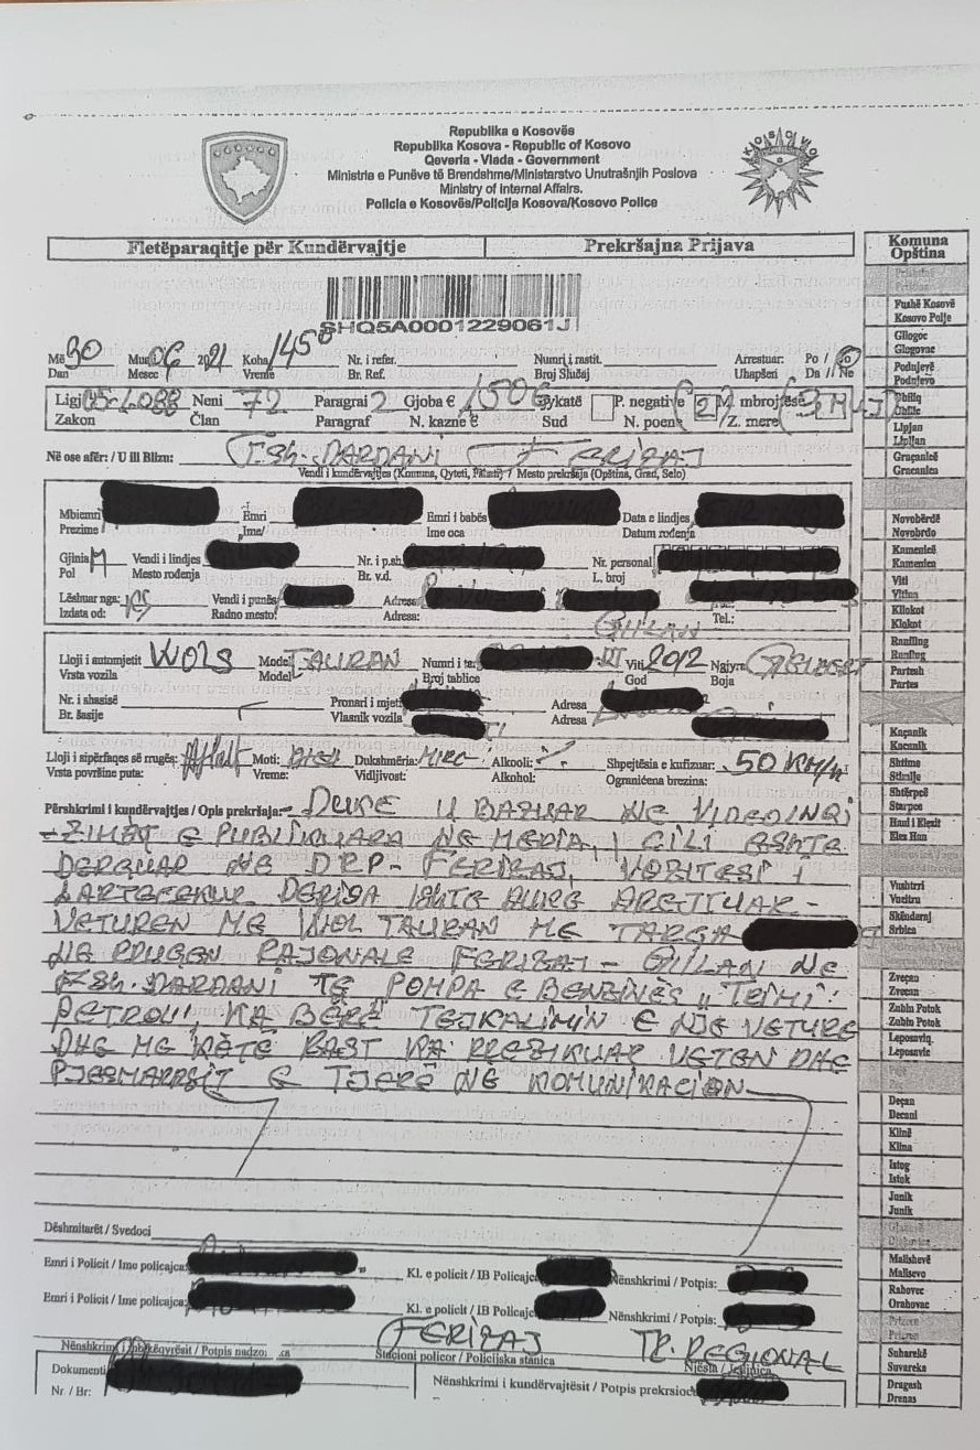 Republika e Kosovës
Republika Kosova - Republic of Kosovo
Qeveria - Vlada - Government
Ministria e Punëve të Brendshme/Ministarstvo Unutrašnjih Poslova
Ministry of Internal Affairs.
Policia e Kosovës/Policija Kosova/Kosovo Police
Fletëparaqitje për Kundërvajtje Prekršajna Prijava
SHQ5A0001229061J
Më 30 Muaj 06 2021 Koha 1450 Nr. i refer. Numri i rastit. Arrestuar: Po / Jo
Dan Mesec Vreme Br. Ref. Broj Slučaj Uhapšen Da / Ne
Ligji 05-L088 Neni 72 Paragrafi 2 Gjoba € 150€ Gjykatë P. negative 2 M. mbrojtëse
Zakon Član Paragraf N. kazne € Sud N. poen Z. mere
Në ose afër: / U ili Blizu: FSH. DARDANI FERIZAJ
Vendi i kundërvajtjes (Komuna, Qyteti, Fshati) / Mesto prekršaja (Opština, Grad, Selo)
Mbiemri Emri Emri i babës Data e lindjes
Prezime Ime/ Ime oca Datum rođenja
Gjinia M Vendi i lindjes Nr. i p.sh. Nr. personal
Pol Mesto rođenja Br. v.d. L. broj
Lëshuar nga: KS Vendi i punës Adresa
Izdata od: Radno mesto: Adresa: GJILAN Tel.:
Lloji i automjetit WOLS Model TAURAN Numri i ta Viti 2012 Ngjyra
Vrsta vozila Model Broj tablice God Boja
Nr. i shasisë Pronari i mjeti Adresa
Br. šasije Vlasnik vozila Adresa
Lloji i sipërfaqes së rrugës: Asfalt Moti: Dukshmëria: MIRE Alkooli: % Shpejtësia e kufizuar: 50 KM/h
Vrsta površine puta: Vreme: Vidljivost: Alkohol: Ograničena brezina:
Përshkrimi i kundërvajtjes / Opis prekršaja: - DUKE U BAZUAR NE VIDEOINQI
-ZIMET E PUBLIKUARA NE MEDIA, I CILI ESHTE
DERGUAR NE DRP- FERIZAJ, VOZITESI I
LARTECEKUR DERISA ISHTE DUKE DREJTUAR -
VETUREN ME WOL TAURAN ME TARGA
NE RRUGEN RAJONALE FERIZAJ - GJILAN NE
FSH. DARDANI TE POMPA E BENZINËS "TRIMI
PETROL", KA BËRË TEJKALIMIN E NJE VETURE
DHE ME KËTË RAST KA RREZIKUAR VETEN DHE
PJESMARRSIT E TJERË NE KOMUNIKACION
Dëshmitarët / Svedoci
Emri i Policit / Ime policajca: Kl. e policit / IB Policajc Nënshkrimi / Potpis:
Emri i Policit / Ime policajca: Kl. e policit / IB Policajc Nënshkrimi / Potpis:
FERIZAJ TR. REGIONAL
Nënshkrimi i mbikëqyrësit / Potpis nadzo Stacioni policor / Policijska stanica Njësia / Jedinica
Dokumenti
Nr. / Br: Nënshkrimi i kundërvajtësit / Potpis prekrsioc
Komuna
Opština
Fushë Kosovë
Kosovo Polje
Gllogoc
Glogovac
Podujevë
Podujevo
Obiliq
Obilic
Lipjan
Lipljan
Graçanicë
Gracanica
Novobërdë
Novobrdo
Kamenicë
Kamenica
Viti
Vitina
Kllokot
Klokot
Ranillug
Ranilug
Partesh
Partes
Kaçanik
Kacanik
Shtime
Stimlje
Shtërpcë
Starpce
Hani i Elezit
Elez Han
Vushtrri
Vucitrn
Skënderaj
Srbica
Zveçan
Zvecan
Zubin Potok
Zubin Potok
Leposaviq.
Leposavic
Deçan
Decani
Klinë
Klina
Istog
Istok
Junik
Junik
Malishevë
Malisevo
Rahovec
Orahovac
Prizren
Prizren
Suharekë
Suvareka
Dragash
Drenas